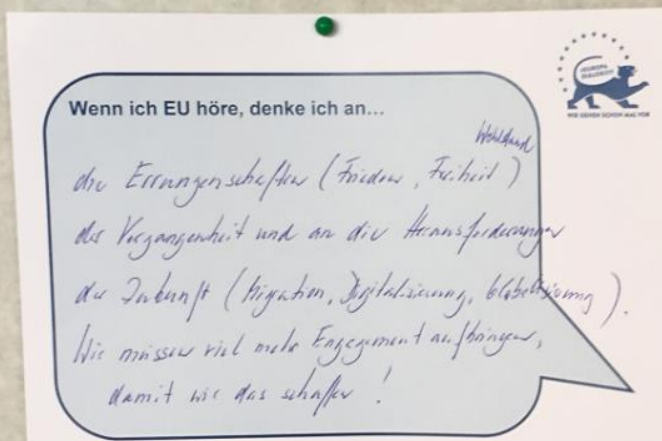 Wenn ich EU höre, denke ich an...
Wohlstand
die Errungenschaften (Frieden, Freiheit)
der Vergangenheit und an die Herausforderungen
der Zukunft (Migration, Digitalisierung, Globalisierung).
Wir müssen viel mehr Engagement aufbringen,
damit wir das schaffen!
WIR GEHEN SCHON MAL VOR